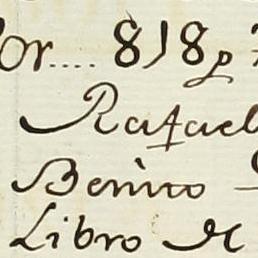 or.... 818p
Rafael
Benito
Libro de